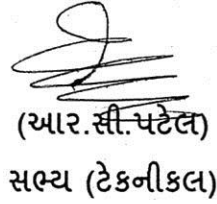 (આર.સી.પટેલ)
સભ્ય (ટેકનીકલ)